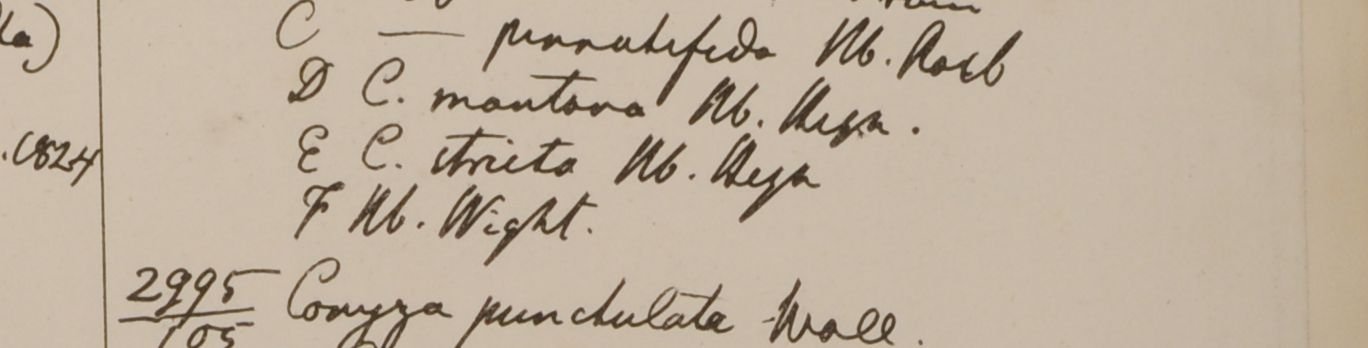 la)
C — pinnatifida Hb. Roxb
D C. montana Hb. Heyn.
.1824
E C. stricta Hb. Heyn
F Hb. Wight.
2995 Conyza punctulata Wall.
105